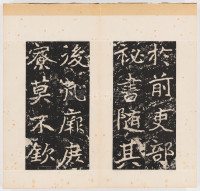 於前吏部
祕書隨其
後凡廊廟
寮莫不欽